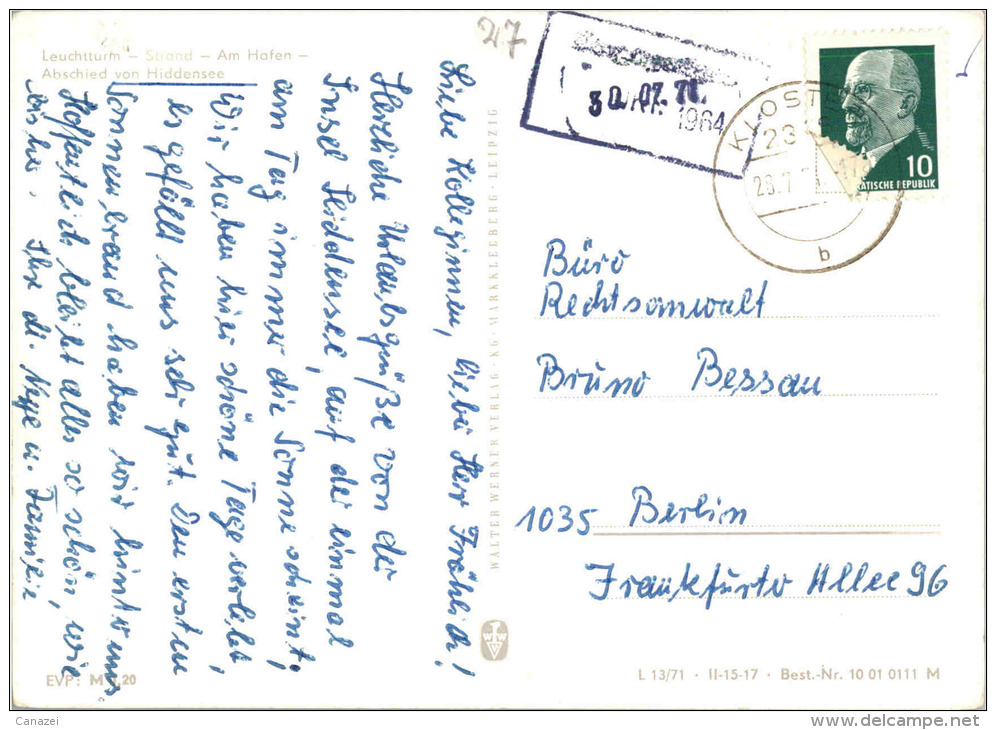 Leuchtturm – Strand – Am Hafen –
Abschied von Hiddensee
27
30.07.71.
1964
KLOSTE
23
b
10
ATISCHE REPUBLIK
Liebe Kolleginnen, lieber Herr Fröhlich!
Herzliche Urlaubsgrüße von der
Insel Hiddensee, auf der einmal
am Tag immer die Sonne scheint.
Wir haben hier schöne Tage verlebt,
es gefällt uns sehr gut. Den ersten
Sonnenbrand haben wir hinter uns.
Hoffentlich bleibt alles so schön, wie
bisher. Ihre u. Familie
WALTER WERNER VERLAG · KG · MARKKLEEBERG · LEIPZIG
Büro
Rechtsanwalt
Bruno Bessau
1035 Berlin
Frankfurter Allee 96
EVP: M 0,20
L 13/71 · II-15-17 · Best.-Nr. 10 01 0111 M
Canazei
www.delcampe.net